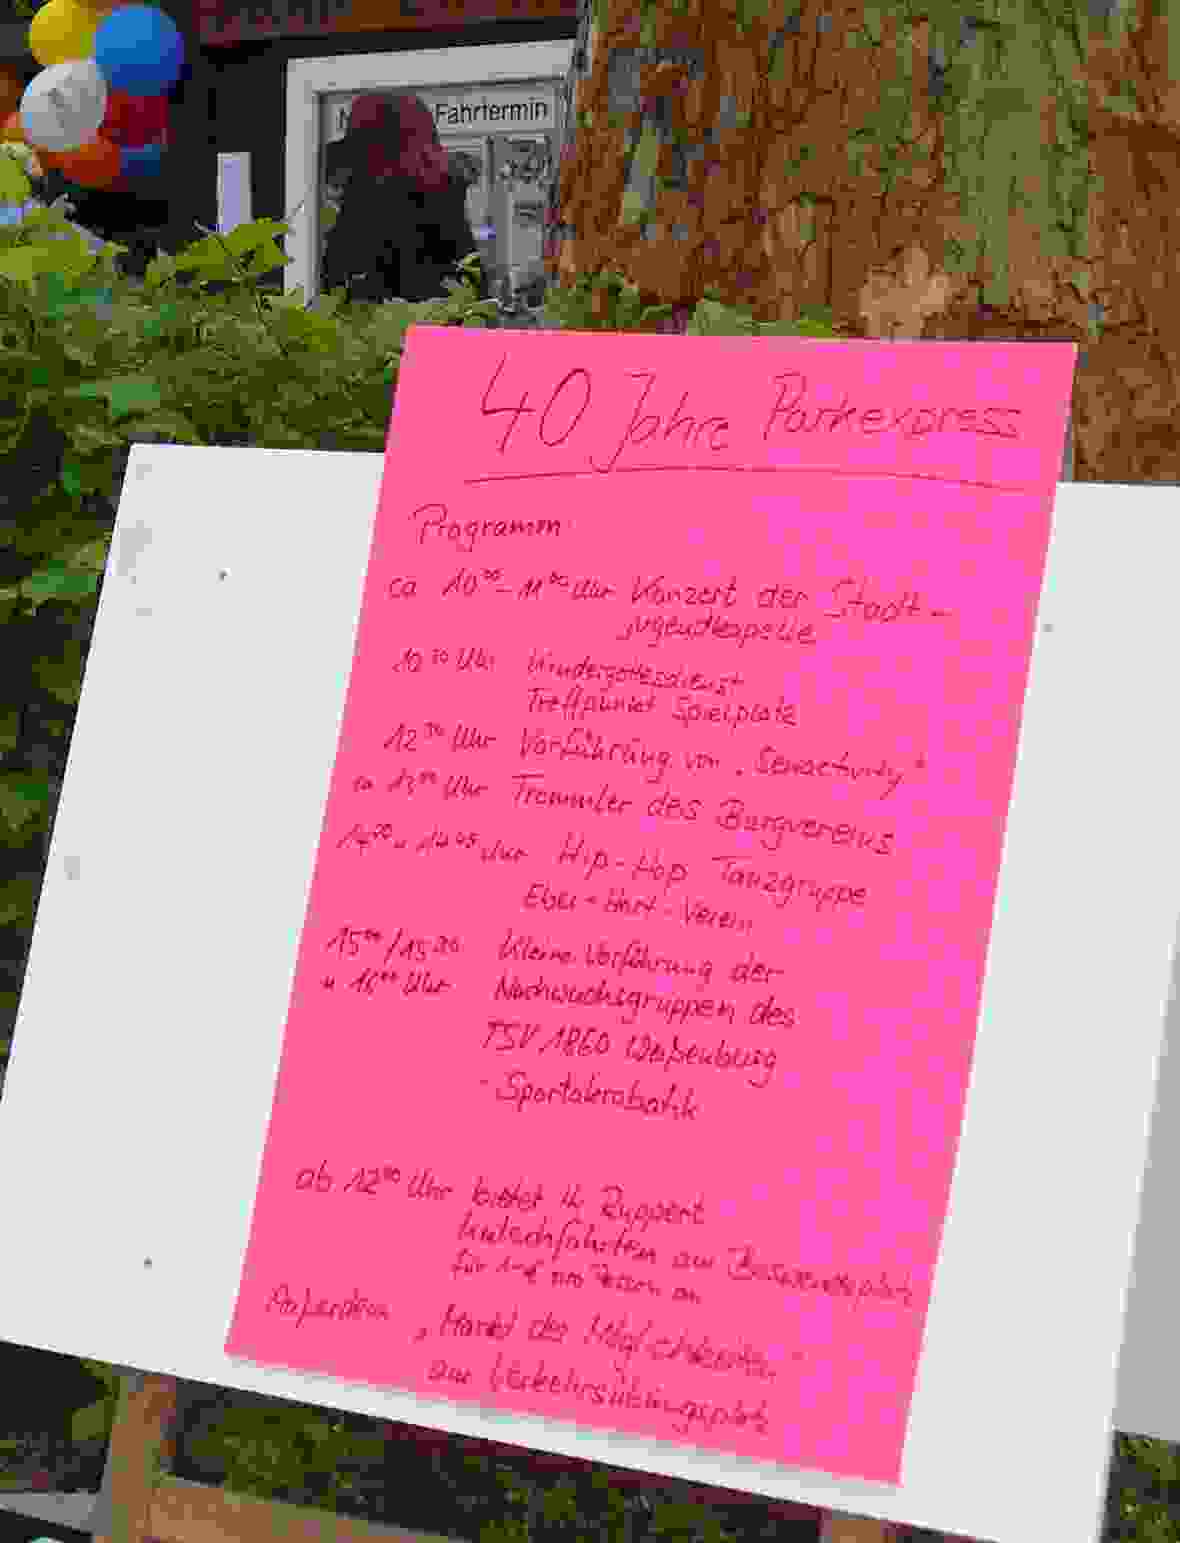 Fahrtermin
40 Jahre Parkexpress
Programm:
ca 10⁰⁰ - 11⁰⁰ Uhr Konzert der Stadt-
jugendkapelle
10³⁰ Uhr Kindergottesdienst
Treffpunkt Spielplatz
12³⁰ Uhr Vorführung von
ca 13⁰⁰ Uhr Trommler des Burgvereins
14⁰⁰ u 14⁴⁵ Uhr Hip-Hop Tanzgruppe
Verein
15⁰⁰/15³⁰ Kleine Vorführung der
u 16⁰⁰ Uhr Nachwuchsgruppen des
TSV 1860 Weißenburg
- Sportakrobatik
ab 12⁰⁰ Uhr bietet Ruppert
Kutschfahrten am
für 1-€ pro Person an
Außerdem „Markt der Möglichkeiten"
am Verkehrsübungsplatz